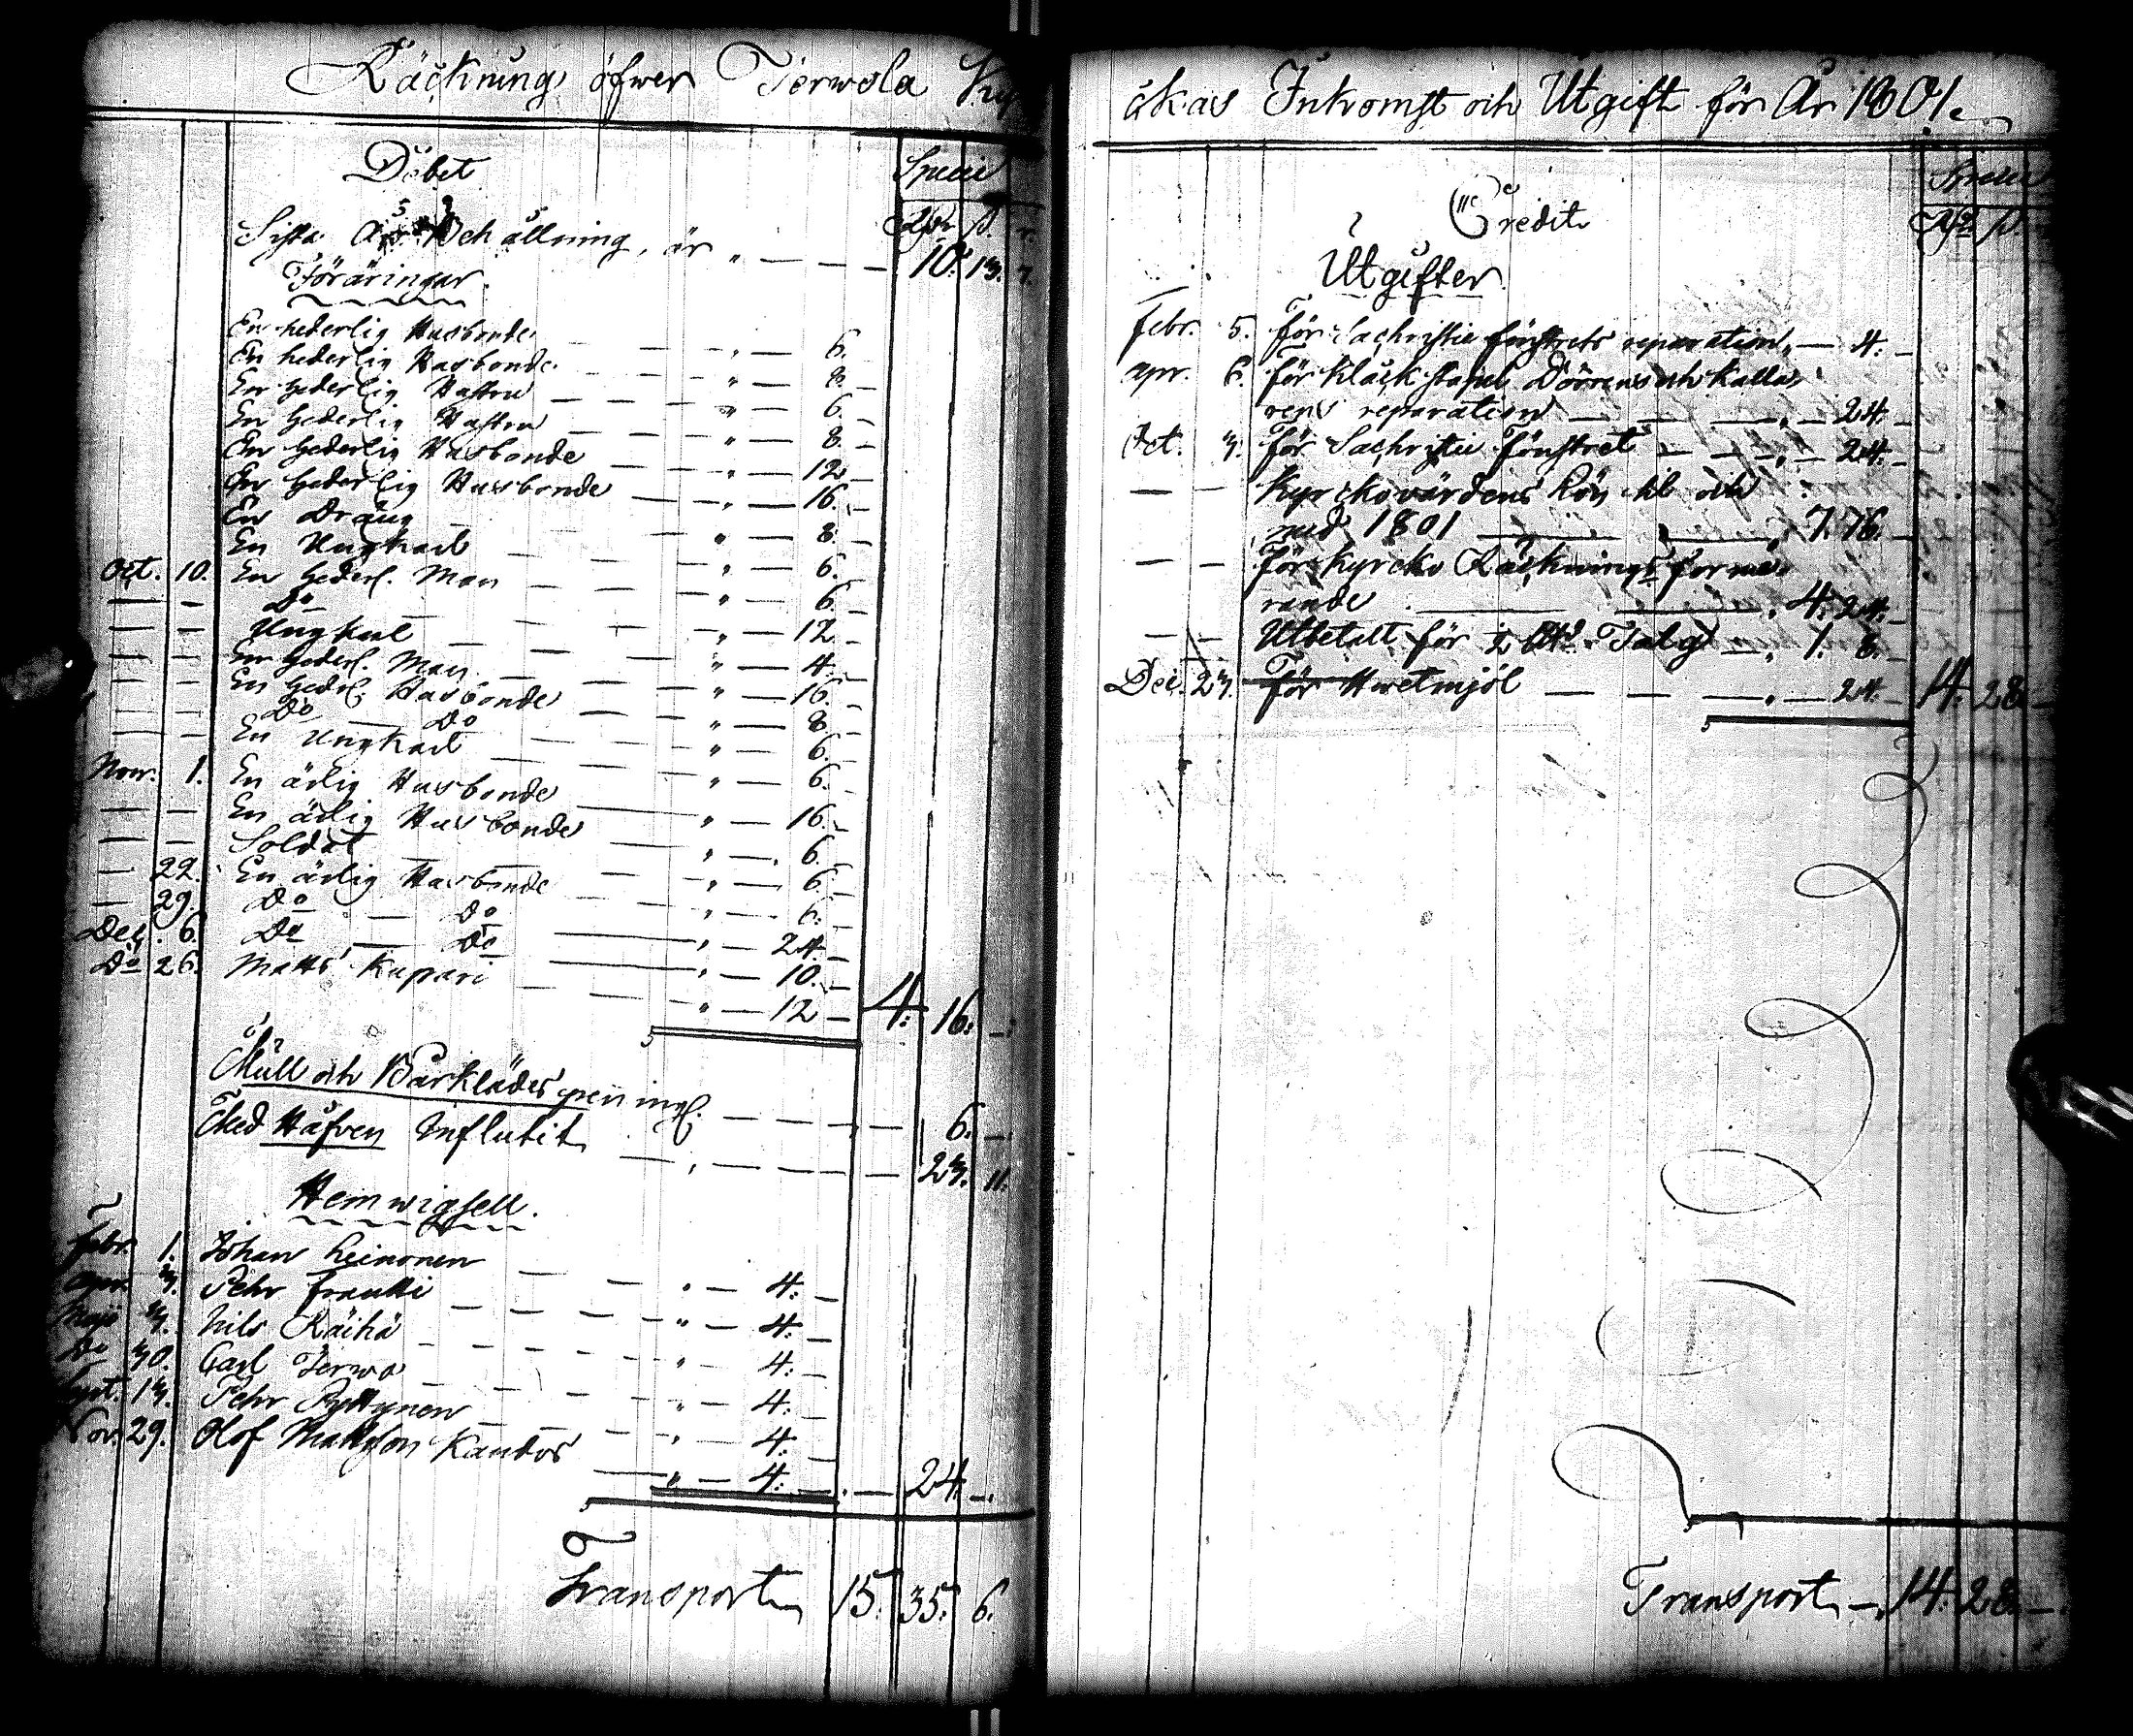 Räckning öfwer Terwola Ky
Debet
Specie
Rdr ß. r.
Sista Års Behållning, är " — — — 10. 13. 7.
Föräringar.
En hederlig Husbonde — — " — 6. —
En hederlig Husbonde — — — " — 8. —
En hederlig Hustru — — — " — 6. —
En hederlig Hustru — — — " — 8. —
En hederlig Husbonde — — " — 12 —
En hederlig Husbonde — — " — 16. —
En Dräng — " — 8. —
En Ungkarl — — — " — 6. —
Oct. 10. En hederl. Man — — — " — 6. —
— — Do — — — " — 12 —
— — Ungkarl — — — " — 4. —
— — En hederl. Man — — — " — 16. —
— — En hederl. Husbonde — — " — 8. —
— — Do — Do — — — " — 6. —
— — En Ungkarl — — — " — 6. —
Novr. 1. En ärlig Husbonde — " — 16. —
— — En ärlig Husbonde — " — 6. —
— — Soldat — — — " — 6. —
— 22. En ärlig Husbonde — — " — 6. —
— 29. Do — Do — " — 24. —
Dec. 6. Do — Do — " — 10. —
Do 26. Matts Kupari — — — " — 12 — 4. 16. —
Mull och Bårklädes penningl. — — — — — 6. —
Med Håfven Influtit — " — — — 23. 11.
Hemwigsell.
Febr. 1. Johan Heinonen — — — " — 4. —
apr. 3. Pehr Frantti — — — " — 4. —
Maji 3. Nils Räihä — — — " — 4. —
Do 30. Carl Terwo — — — " — 4. —
Sept. 13. Pehr — — " — 4. —
Nov. 29. Olof Mattsson Kandos — " — 4. — — 24. —
Transport 15. 35. 6.
ckas Inkomst och Utgift för År 1801.
Credit
Specie
Rdr ß.
Utgifter
febr. 5. För Sachristie fönstrets reparation " — 4. —
apr. 6. för Kläckstapel Dörrens och Kalla
rens reparation — — " — 24. —
Oct. 3. för Sachristie Fönstret — — " — 24. —
— — Kyrckovärdens Lön til och
med 1801 — — " 7. 16. —
— — för Kyrcko Räcknings forme
rande — — " 4. 24. —
— — Utbetalt för 2 Talg — " 1. 8. —
Dec. 23. För Hwetmjöl — — — " — 24. — 14. 28. —
Transport — 14. 28. —